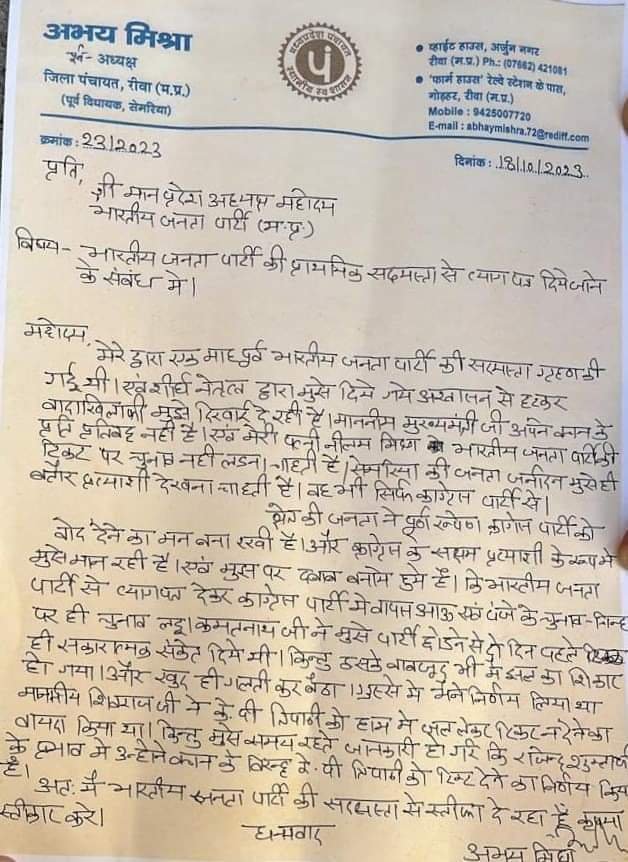 अभय मिश्रा
पूर्व- अध्यक्ष
जिला पंचायत, रीवा (म.प्र.)
(पूर्व विधायक, सेमरिया)
मध्यप्रदेश पंचायत
पं
स्थानीय स्व शासन
● व्हाईट हाउस, अर्जुन नगर
रीवा (म.प्र.) Ph.: (07662) 421081
● 'फार्म हाउस' रेल्वे स्टेशन के पास,
गोड़हर, रीवा (म.प्र.)
Mobile : 9425007720
E-mail : abhaymishra.72@rediff.com
क्रमांक : 23/2023
दिनांक : 18/10/2023
प्रति,
श्री मान प्रदेश अध्यक्ष महोदय
भारतीय जनता पार्टी (म.प्र.)
विषय- भारतीय जनता पार्टी की प्राथमिक सदस्यता से त्याग पत्र दिये जाने
के संबंध मे।
महोदय,
मेरे द्वारा एक माह पूर्व भारतीय जनता पार्टी की सदस्यता ग्रहण की
गई थी। एवं शीर्ष नेतृत्व द्वारा मुझे दिये गये आश्वासन से हटकर
वादाखिलाफी मुझे दिखाई दे रही है। माननीय मुख्यमंत्री जी अपने कथन के
प्रति प्रतिबद्ध नही है। एवं मेरी पत्नी नीलम मिश्रा भारतीय जनता पार्टी की
टिकट पर चुनाव नही लडना चाहती है। सेमरिया की जनता जनार्दन मुझे ही
बतौर प्रत्याशी देखना चाहती है। वह भी सिर्फ कांग्रेस पार्टी से।
क्षेत्र की जनता ने पूर्ण रूपेण कांग्रेस पार्टी को
वोट देने का मन बना रखी है। और कांग्रेस के सक्षम प्रत्याशी के रूप मे
मुझे मान रही है। एवं मुझ पर दबाव बनाये हुये है। कि भारतीय जनता
पार्टी से त्यागपत्र देकर कांग्रेस पार्टी मे वापस आऊ एवं पंजे के चुनाव-चिन्ह
पर ही चुनाव लडू। कमलनाथ जी ने मुझे पार्टी छोडने से दो दिन पहले
ही सकारात्मक संकेत दिये थे। किन्तु उसके बावजूद भी मै छल का शिकार
हो गया। और खुद ही गलती कर बैठा। गुस्से मे मैने निर्णय लिया था
माननीय शिवराज जी ने के. पी त्रिपाठी को हाथ मे जल लेकर टिकट न देने का
वायदा किया था। किन्तु मुझे समय रहते जानकारी हो गई कि राजेन्द्र शुक्ला
के प्रभाव मे उन्होंने कथन के विरुद्ध के. पी त्रिपाठी को टिकट देने का निर्णय किया
है।
अतः मै भारतीय जनता पार्टी की सदस्यता से स्तीफा दे रहा हूँ कृपया
स्वीकार करे।
धन्यवाद
अभय मिश्रा